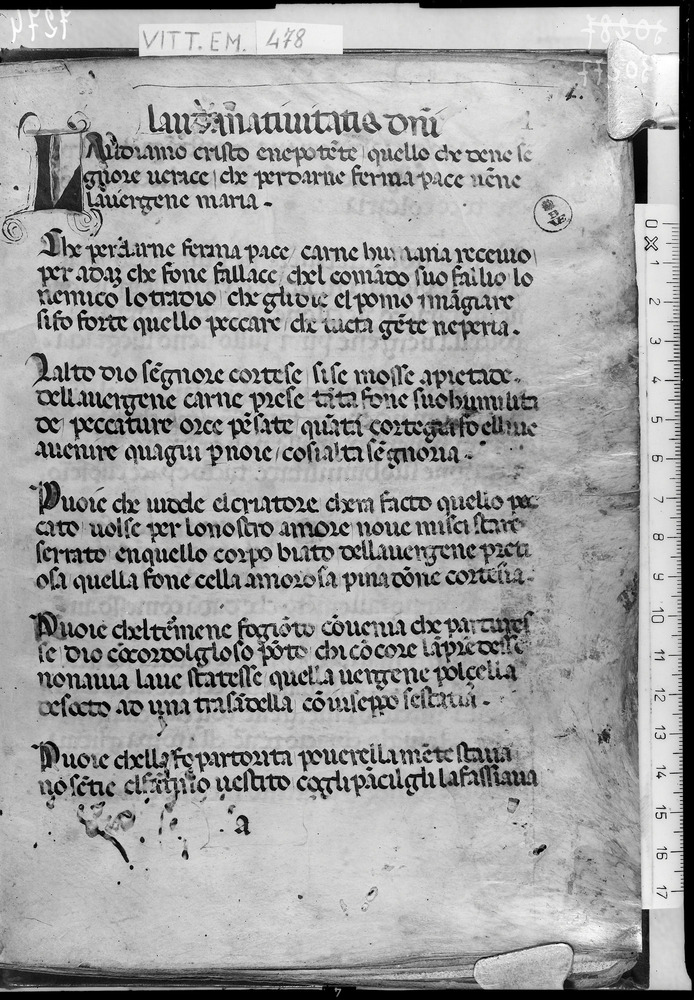 7274
VITT. EM. 478
30287
30277
1.
laudanatiuitatis dñi
LAudiamo cristo enepotẽte quello che uene se
gnore uerace che perdarne ferma pace uẽne
lauergene maria.
Che perdarne ferma pace carne humana receuio
per adaʒ che fone fallace chel comãdo suo fallio lo
nemico lo tradio che gli die el pomo mãgiare
si fo forte quello peccare che tucta gẽte ne peria.
Lalto dio sẽgnore cortese si se mosse apietade.
dellauergene carne prese tãta fone suo humilita
de peccature orce pẽsate quãta
auenire quagiu p noie cosi alta sẽgnoria.
Puoie che uidde el criatore chera facto quello pec
cato uolse per lo nostro amore noue misci stare
serrato en quello corpo biato della uergene preti
osa quella fone cella amorosa pina dõne cortesia.
Puoie chel tẽmene fo giõto cõuenia che parturis
se dio cõcordolgloso põto chi cõ core la predesse
non auia laue statesse quella uergene polçella
desocto ad una trasãdella cõ iuseppo se staua.
Puoie chella fo partorita pouerella mẽte staua
nõ sẽtie el fãtino uestito cogli pãcilgli la fassiaua
a
0 1 2 3 4 5 6 7 8 9 10 11 12 13 14 15 16 17
7